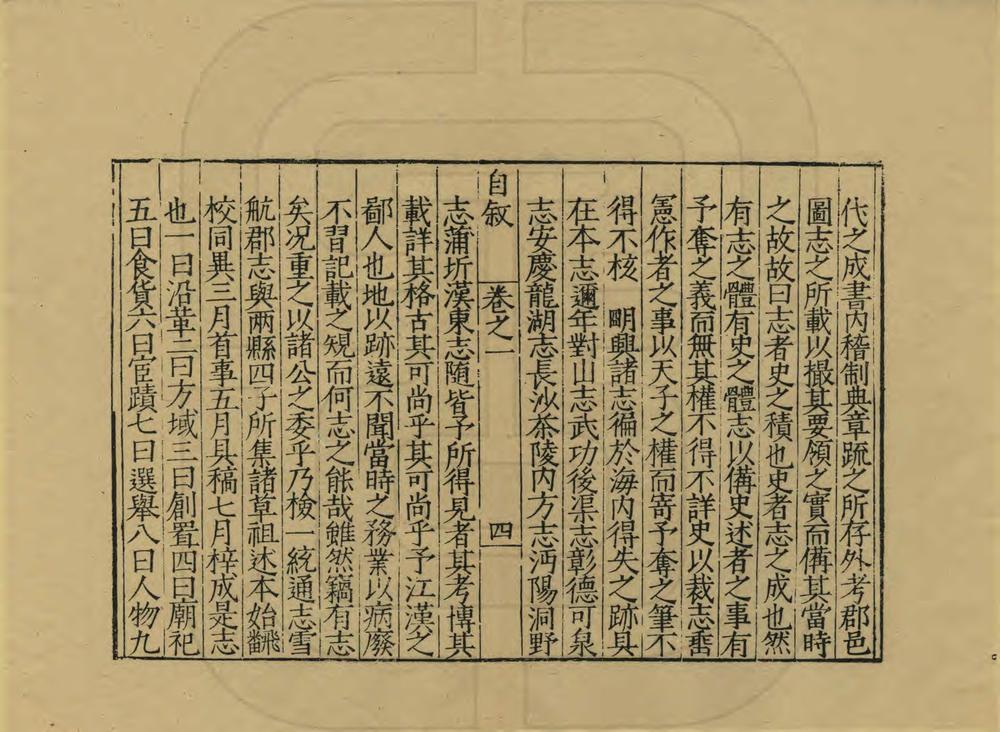 代之成書內稽制典章疏之所存外考郡邑
圖志之所載以撮其要領之實而備其當時
之故故曰志者史之積也史者志之成也然
有志之體有史之體志以備史述者之事有
予奪之義而無其權不得不詳史以裁志垂
憲作者之事以天子之權而寄予奪之筆不
得不核　明興諸志徧於海內得失之跡具
在本志邇年對山志武功後渠志彰德可泉
志安慶龍湖志長沙茶陵內方志沔陽洞野
自叙　卷之一　四
志蒲圻漢東志隨皆予所得見者其考博其
載詳其格古其可尚乎其可尚乎予江漢之
鄙人也地以跡遠不聞當時之務業以病廢
不習記載之規而何志之能哉雖然竊有志
矣况重之以諸公之委乎乃檢一統通志雪
航郡志與兩縣四子所集諸草祖述本始飜
校同異三月首事五月具稿七月梓成是志
也一曰沿革二曰方域三曰創置四曰廟祀
五曰食貨六曰宦蹟七曰選舉八曰人物九